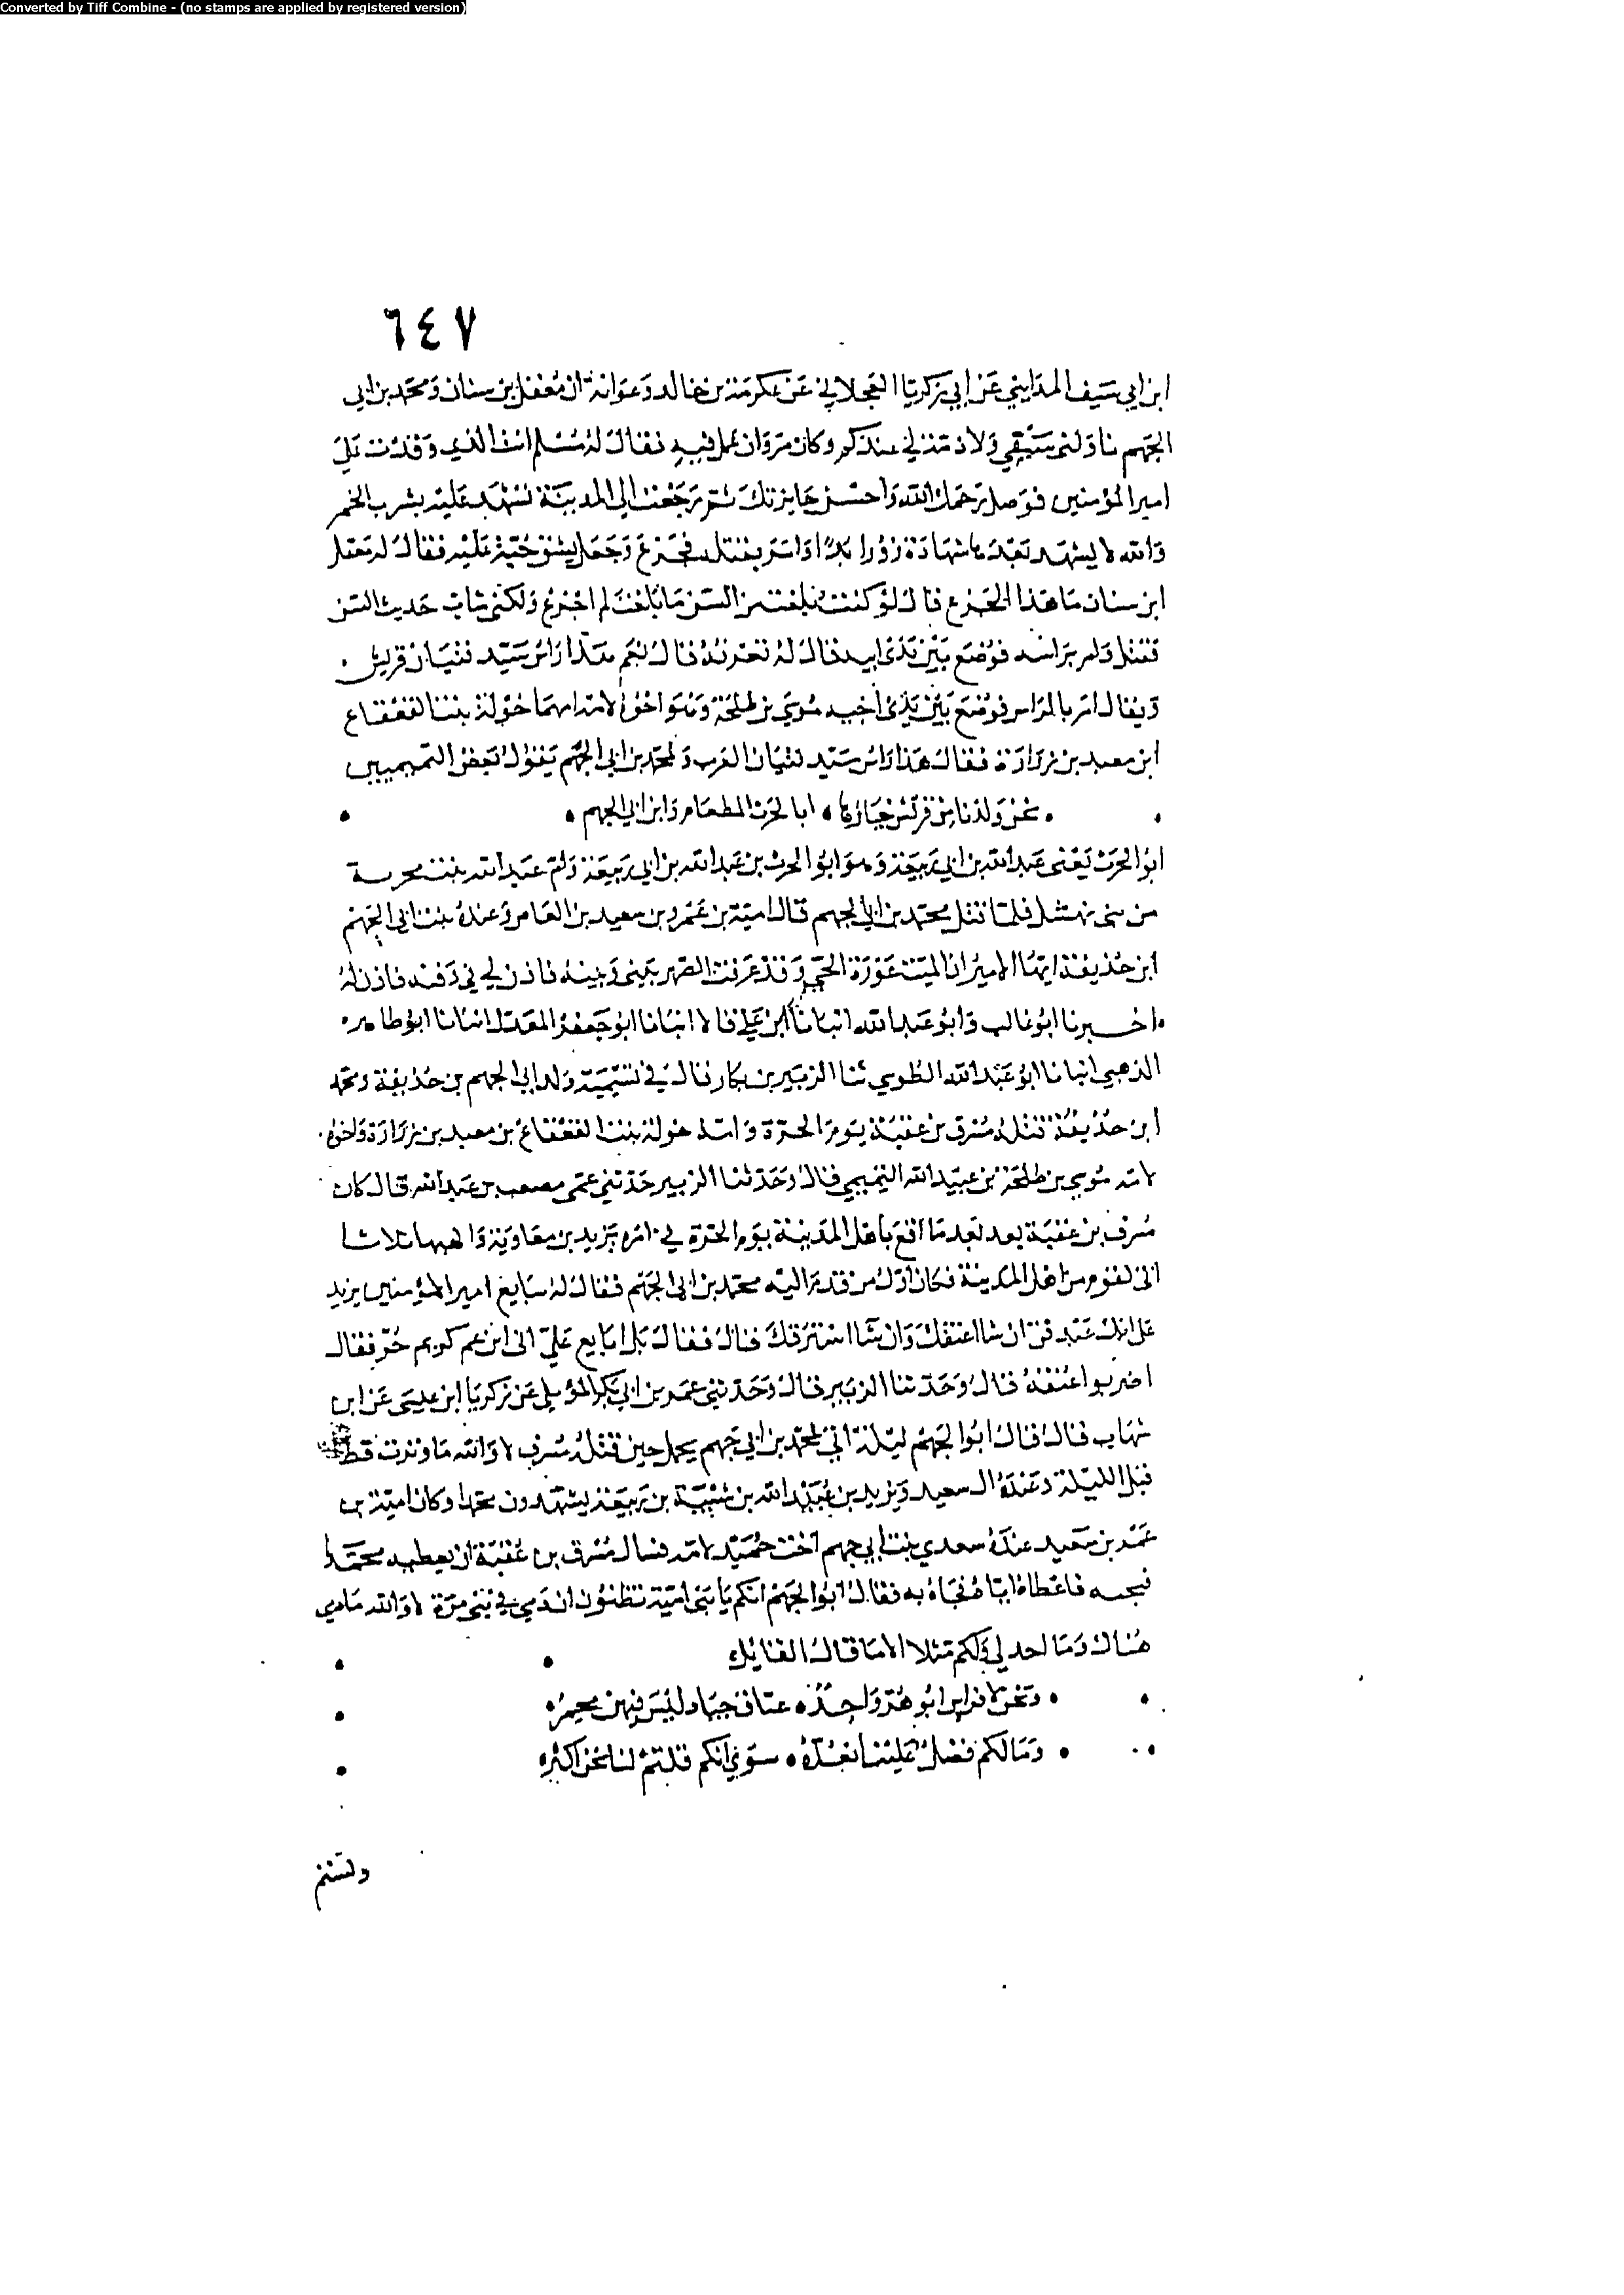 Converted by Tiff Combine - (no stamps are applied by registered version)
٦٤٧
ابن ابي سيف المدايني عن ابي زكريا العجلاني عن عكرمة بن خالد وعوانة ان معقل بن سنان ومحمد بن ابي
الجهم وكان مروان فقال له مسلم وفدت على
امير المؤمنين فوصل رحمك الله واحسن جايزتك ثم رجعت الى المدينة تشهد عليه بشرب الخمر
والله لا يشهد بعدها شهادة زورا ابدا وامر بقتله فجزع وجعل يشق جبته عليه فقال له معقل
ابن سنان ما هذا الجزع قال لو كنت بلغت من السن ما بلغت لم اجزع ولكني شاب حديث السن
فقتل وامر براسه فوضع بين يدي ابيه فقال له تعرفه قال نعم هذا راس سيد فتيان قريش
ويقال امر بالراس فوضع بين يدي اخيه موسى بن طلحة وهو اخوه لامه امهما خولة بنت القعقاع
ابن معبد بن زرارة فقال هذا راس سيد فتيان العرب ولمحمد بن ابي الجهم يقول بعض التميميين
نحن ولدنا من قريش خيارها ابا الحرث المطعام وابن ابي الجهم
ابو الحرث يعني عبد الله بن ابي ربيعة وهو ابو الحرث بن عبد الله بن ابي ربيعة وام عبد الله بنت مخربة
من بني نهشل فلما قتل محمد بن ابي الجهم قال امية بن عمرو بن سعيد بن العاص وعنده بنت ابي الجهم
ابن حذيفة ايها الامير ان الميت عورة الحي وقد عرفت الصهر بيني وبينه فاذن لي في دفنه فاذن له
اخبرنا ابو غالب وابو عبد الله انبانا ابن علي قالا انبانا ابو جعفر المعدل انبانا ابو طاهر
الذهبي انبانا ابو عبد الله الطوسي ثنا الزبير بن بكار قال في تسمية ولد ابي الجهم بن حذيفة ومحمد
ابن حذيفة قتله مسرف بن عقبة يوم الحرة وامه خولة بنت القعقاع بن معبد بن زرارة واخوه
لامه موسى بن طلحة بن عبيد الله التيمي قال وحدثنا الزبير حدثني عمي مصعب بن عبد الله قال كان
مسرف بن عقبة بعد بعدما اوقع باهل المدينة يوم الحرة في امرة يزيد بن معاوية وانهبها ثلاثا
اتى لقوم من اهل المدينة فكان اول من قدم اليه محمد بن ابي الجهم فقال له تبايع امير المؤمنين يزيد
على انك عبد قن ان شا اعتقك وان شا استرقك قال فقال بل ابايع على اني ابن عم كريم حر فقال
اضربوا عنقه قال وحدثنا الزبير قال وحدثني عمر بن ابي بكر المؤملي عن زكريا ابن عيسى عن ابن
شهاب قال قال ابو الجهم ليلة اتي لمحمد بن ابي جهم يحمل حين قتله مسرف لا والله ما وترت قط
قبل الليلة وعنده ال سعيد ويزيد بن عبيد الله بن شيبة بن ربيعة يشهدون وكان امية بن
عمرو بن سعيد عنده سعدى بنت ابي جهم اخت حميد لامه فسال مسرف بن عقبة ان يعطيه محمدا
فاعطاه اياه فجاه به فقال ابو الجهم انكم يا بني امية تظنون ان دمي في بني مرة لا والله ما دمي
هناك وما اجد لي ولكم مثلا الا ما قال القايل
ونحن لافراس ابوهن واحد عتاق جياد ليس فيهن محمر
وما لكم فضل علينا نعده سوى انكم قلتم لنا نحن اكثر
ولستم